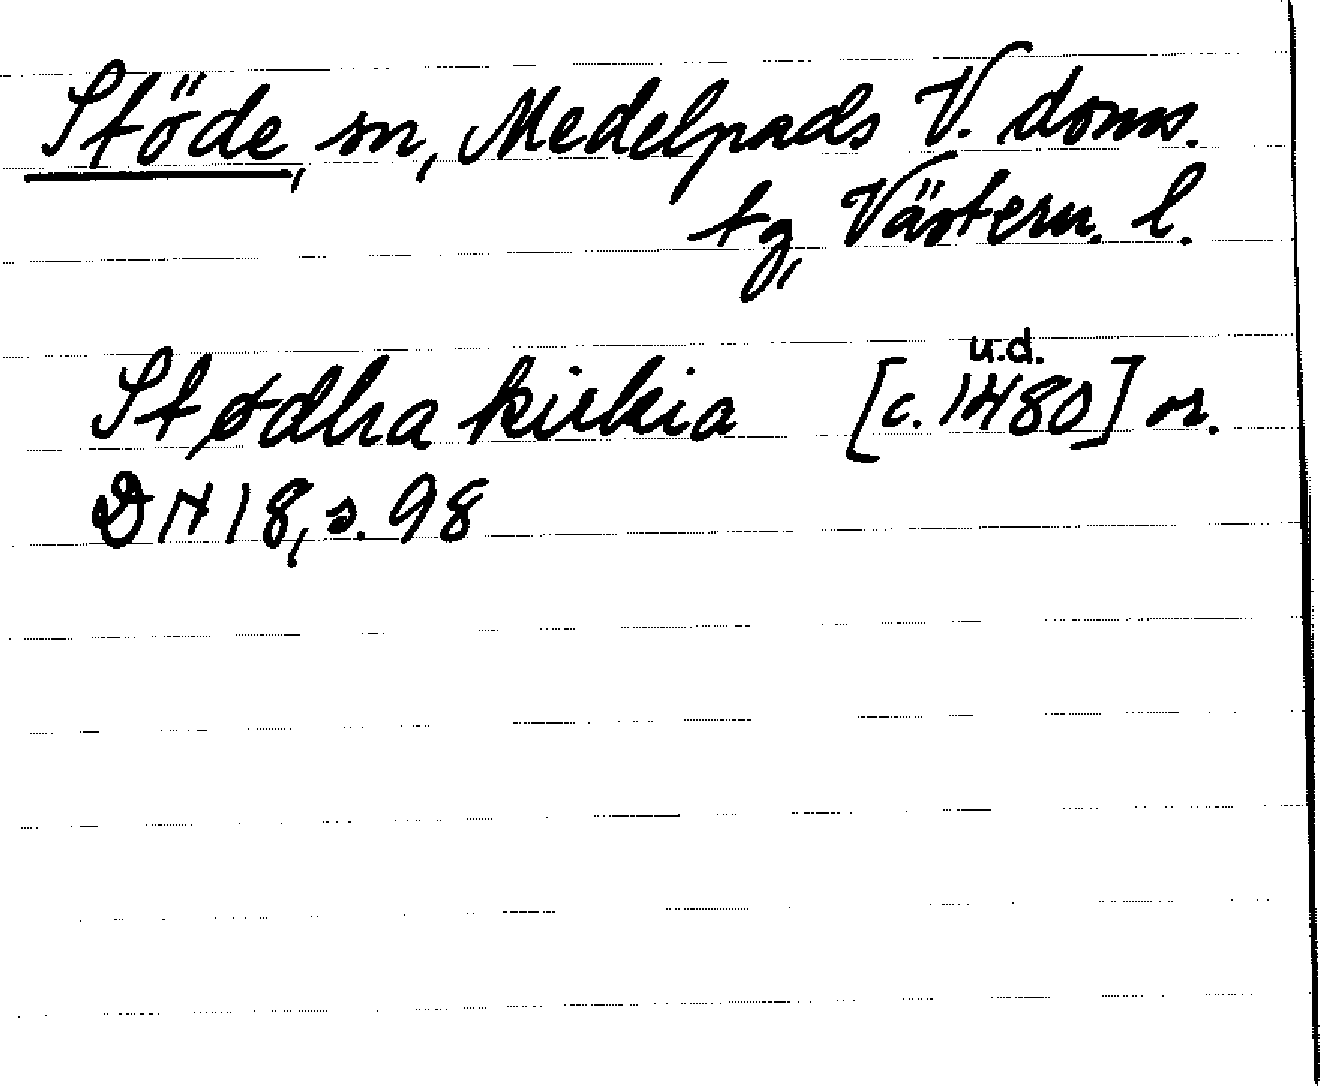 Stöde, sn, Medelpads V. doms.
tg, Västern. l.
u.d.
Stødha kirkia [c. 1480] or.
DN 18, s. 98